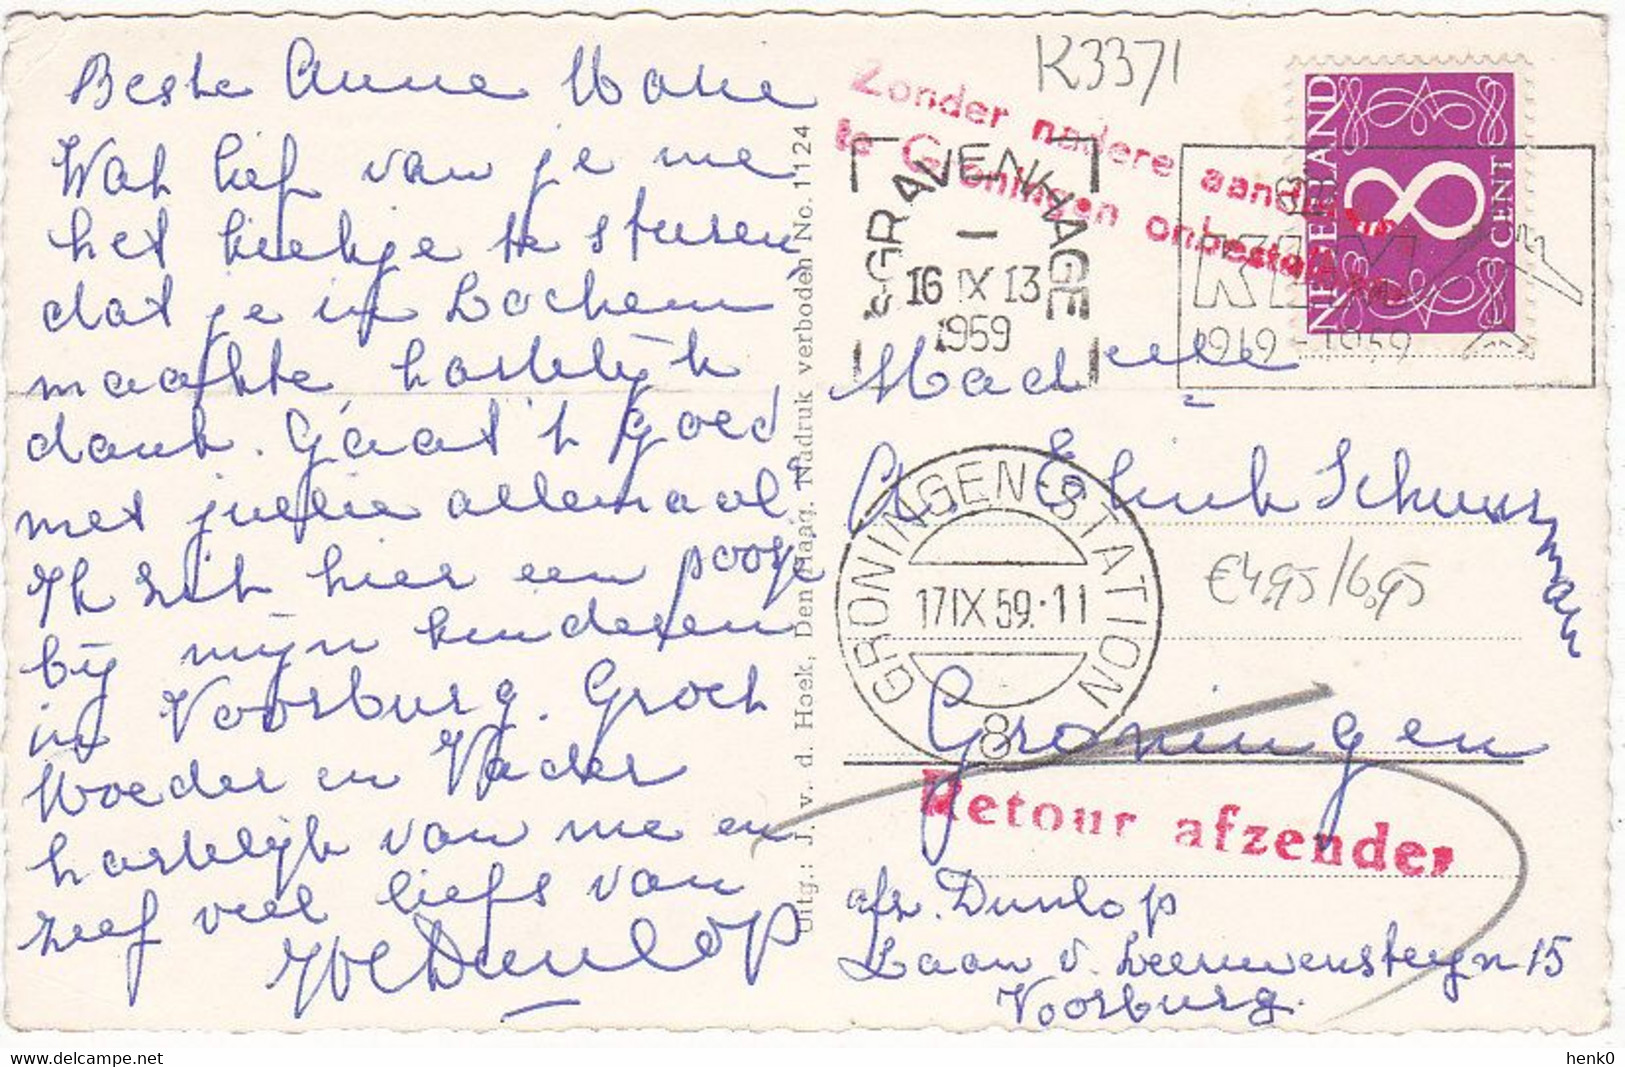 Beste Anne Marie
Wat lief van je me
het kiekje te sturen,
dat je in Lochem
maakte, hartelijk
dank. Gaat 't goed
met jullie allemaal?
Ik zit hier een poosje
bij mijn kinderen
in Voorburg. Groet
Moeder en Vader
hartelijk van me en
zelf veel liefs van
Dunlop
Uitg.: J. v. d. Hoek, Den Haag. Nadruk verboden No. 1124
K3371
Zonder nadere aand
te Groningen onbestel
's-GRAVENHAGE
16 IX 13
1959
NEDERLAND
8
CENT
KLM
1919-1959
A Schuurman
€4,95/6,95
GRONINGEN-STATION
17 IX 59·11
8
Groningen
Retour afzender
afz. Dunlop
Laan v. Leeuwensteyn 15
Voorburg.
henk0